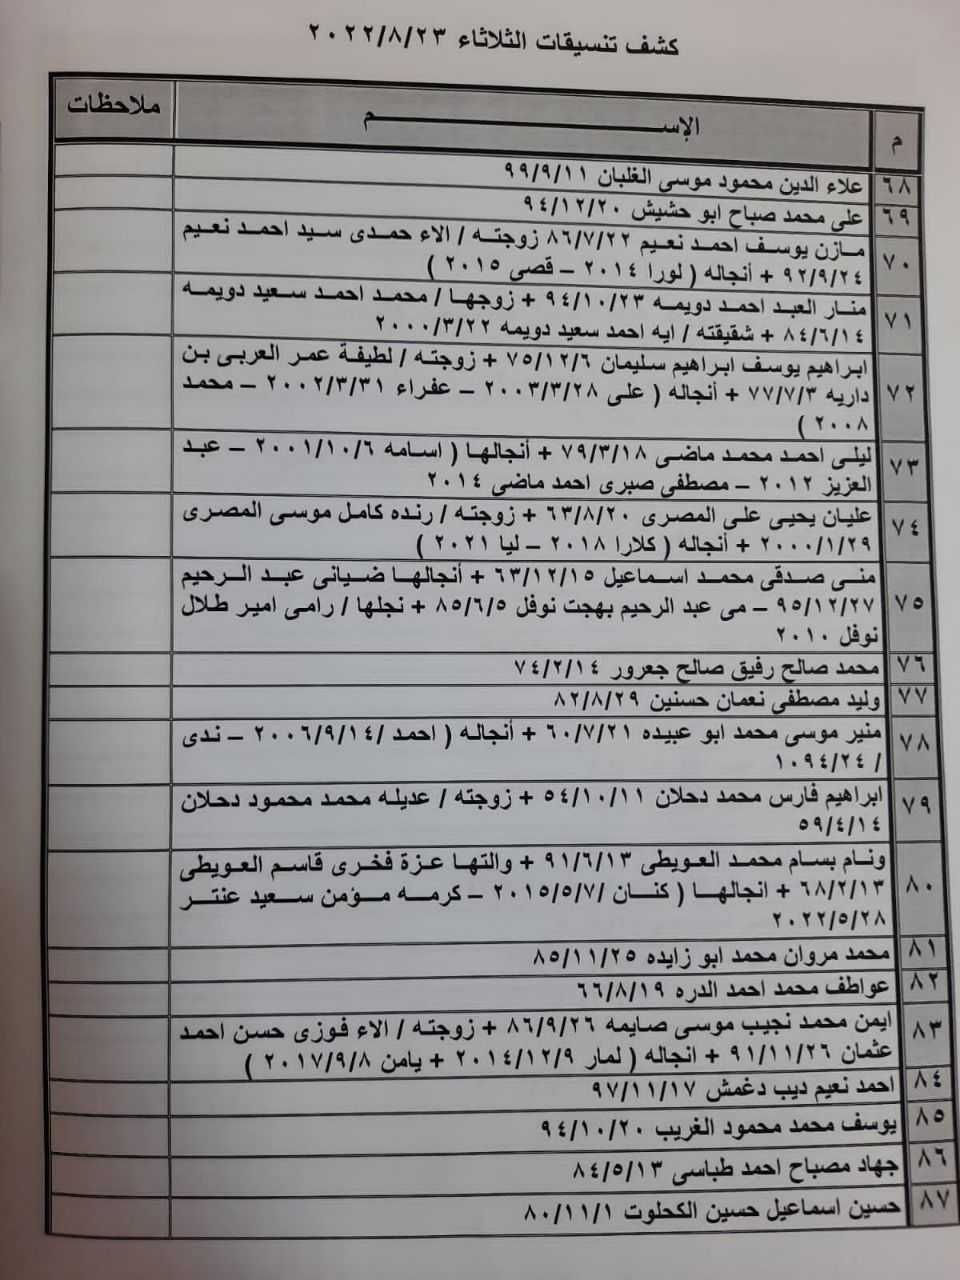 كشف تنسيقات الثلاثاء ٢٠٢٢/٨/٢٣
م الإسم ملاحظات
٦٨ علاء الدين محمود موسى الغلبان ٩٩/٩/١١
٦٩ على محمد صباح ابو حشيش ٩٤/١٢/٢٠
٧٠ مازن يوسف احمد نعيم ٨٦/٧/٢٢ زوجته / الاء حمدى سيد احمد نعيم
٩٢/٩/٢٤ + أنجاله ( لورا ٢٠١٤ – قصى ٢٠١٥ )
٧١ منار العبد احمد دويمه ٩٤/١٠/٢٣ + زوجها / محمد احمد سعيد دويمه
٨٤/٦/١٤ + شقيقته / ايه احمد سعيد دويمه ٢٠٠٠/٣/٢٢
٧٢ ابراهيم يوسف ابراهيم سليمان ٧٥/١٢/٦ + زوجته / لطيفة عمر العربى بن
داريه ٧٧/٧/٣ + أنجاله ( على ٢٠٠٣/٣/٢٨ – عفراء ٢٠٠٢/٣/٣١ – محمد
٢٠٠٨ )
٧٣ ليلى احمد محمد ماضى ٧٩/٣/١٨ + أنجالها ( اسامه ٢٠٠١/١٠/٦ – عبد
العزيز ٢٠١٢ – مصطفى صبرى احمد ماضى ٢٠١٤
٧٤ عليان يحيى على المصرى ٦٣/٨/٢٠ + زوجته / رنده كامل موسى المصرى
٢٠٠٠/١/٢٩ + أنجاله ( كلارا ٢٠١٨ – ليا ٢٠٢١ )
٧٥ منى صدقى محمد اسماعيل ٦٣/١٢/١٥ + أنجالها ضيائى عبد الرحيم
٩٥/١٢/٢٧ – مى عبد الرحيم بهجت نوفل ٨٥/٦/٥ + نجلها / رامى امير طلال
نوفل ٢٠١٠
٧٦ محمد صالح رفيق صالح جعرور ٧٤/٢/١٤
٧٧ وليد مصطفى نعمان حسنين ٨٢/٨/٢٩
٧٨ منير موسى محمد ابو عبيده ٦٠/٧/٢١ + أنجاله ( احمد /٢٠٠٦/٩/١٤ – ندى
/ ١٠٩٤/٢٤
٧٩ ابراهيم فارس محمد دحلان ٥٤/١٠/١١ + زوجته / عديله محمد محمود دحلان
٥٩/٤/١٤
٨٠ ونام بسام محمد العويطى ٩١/٦/١٣ + والتها عزة فخرى قاسم العويطى
٦٨/٢/١٣ + انجالها ( كنان /٢٠١٥/٥/٧ – كرمه مؤمن سعيد عنتر
٢٠٢٢/٥/٢٨
٨١ محمد مروان محمد ابو زايده ٨٥/١١/٢٥
٨٢ عواطف محمد احمد الدره ٦٦/٨/١٩
٨٣ ايمن محمد نجيب موسى صايمه ٨٦/٩/٢٦ + زوجته / الاء فوزى حسن احمد
عثمان ٩١/١١/٢٦ + انجاله ( لمار ٢٠١٤/١٢/٩ + يامن ٢٠١٧/٩/٨ )
٨٤ احمد نعيم ديب دغمش ٩٧/١١/١٧
٨٥ يوسف محمد محمود الغريب ٩٤/١٠/٢٠
٨٦ جهاد مصباح احمد طباسى ٨٤/٥/١٣
٨٧ حسين اسماعيل حسين الكحلوت ٨٠/١١/١